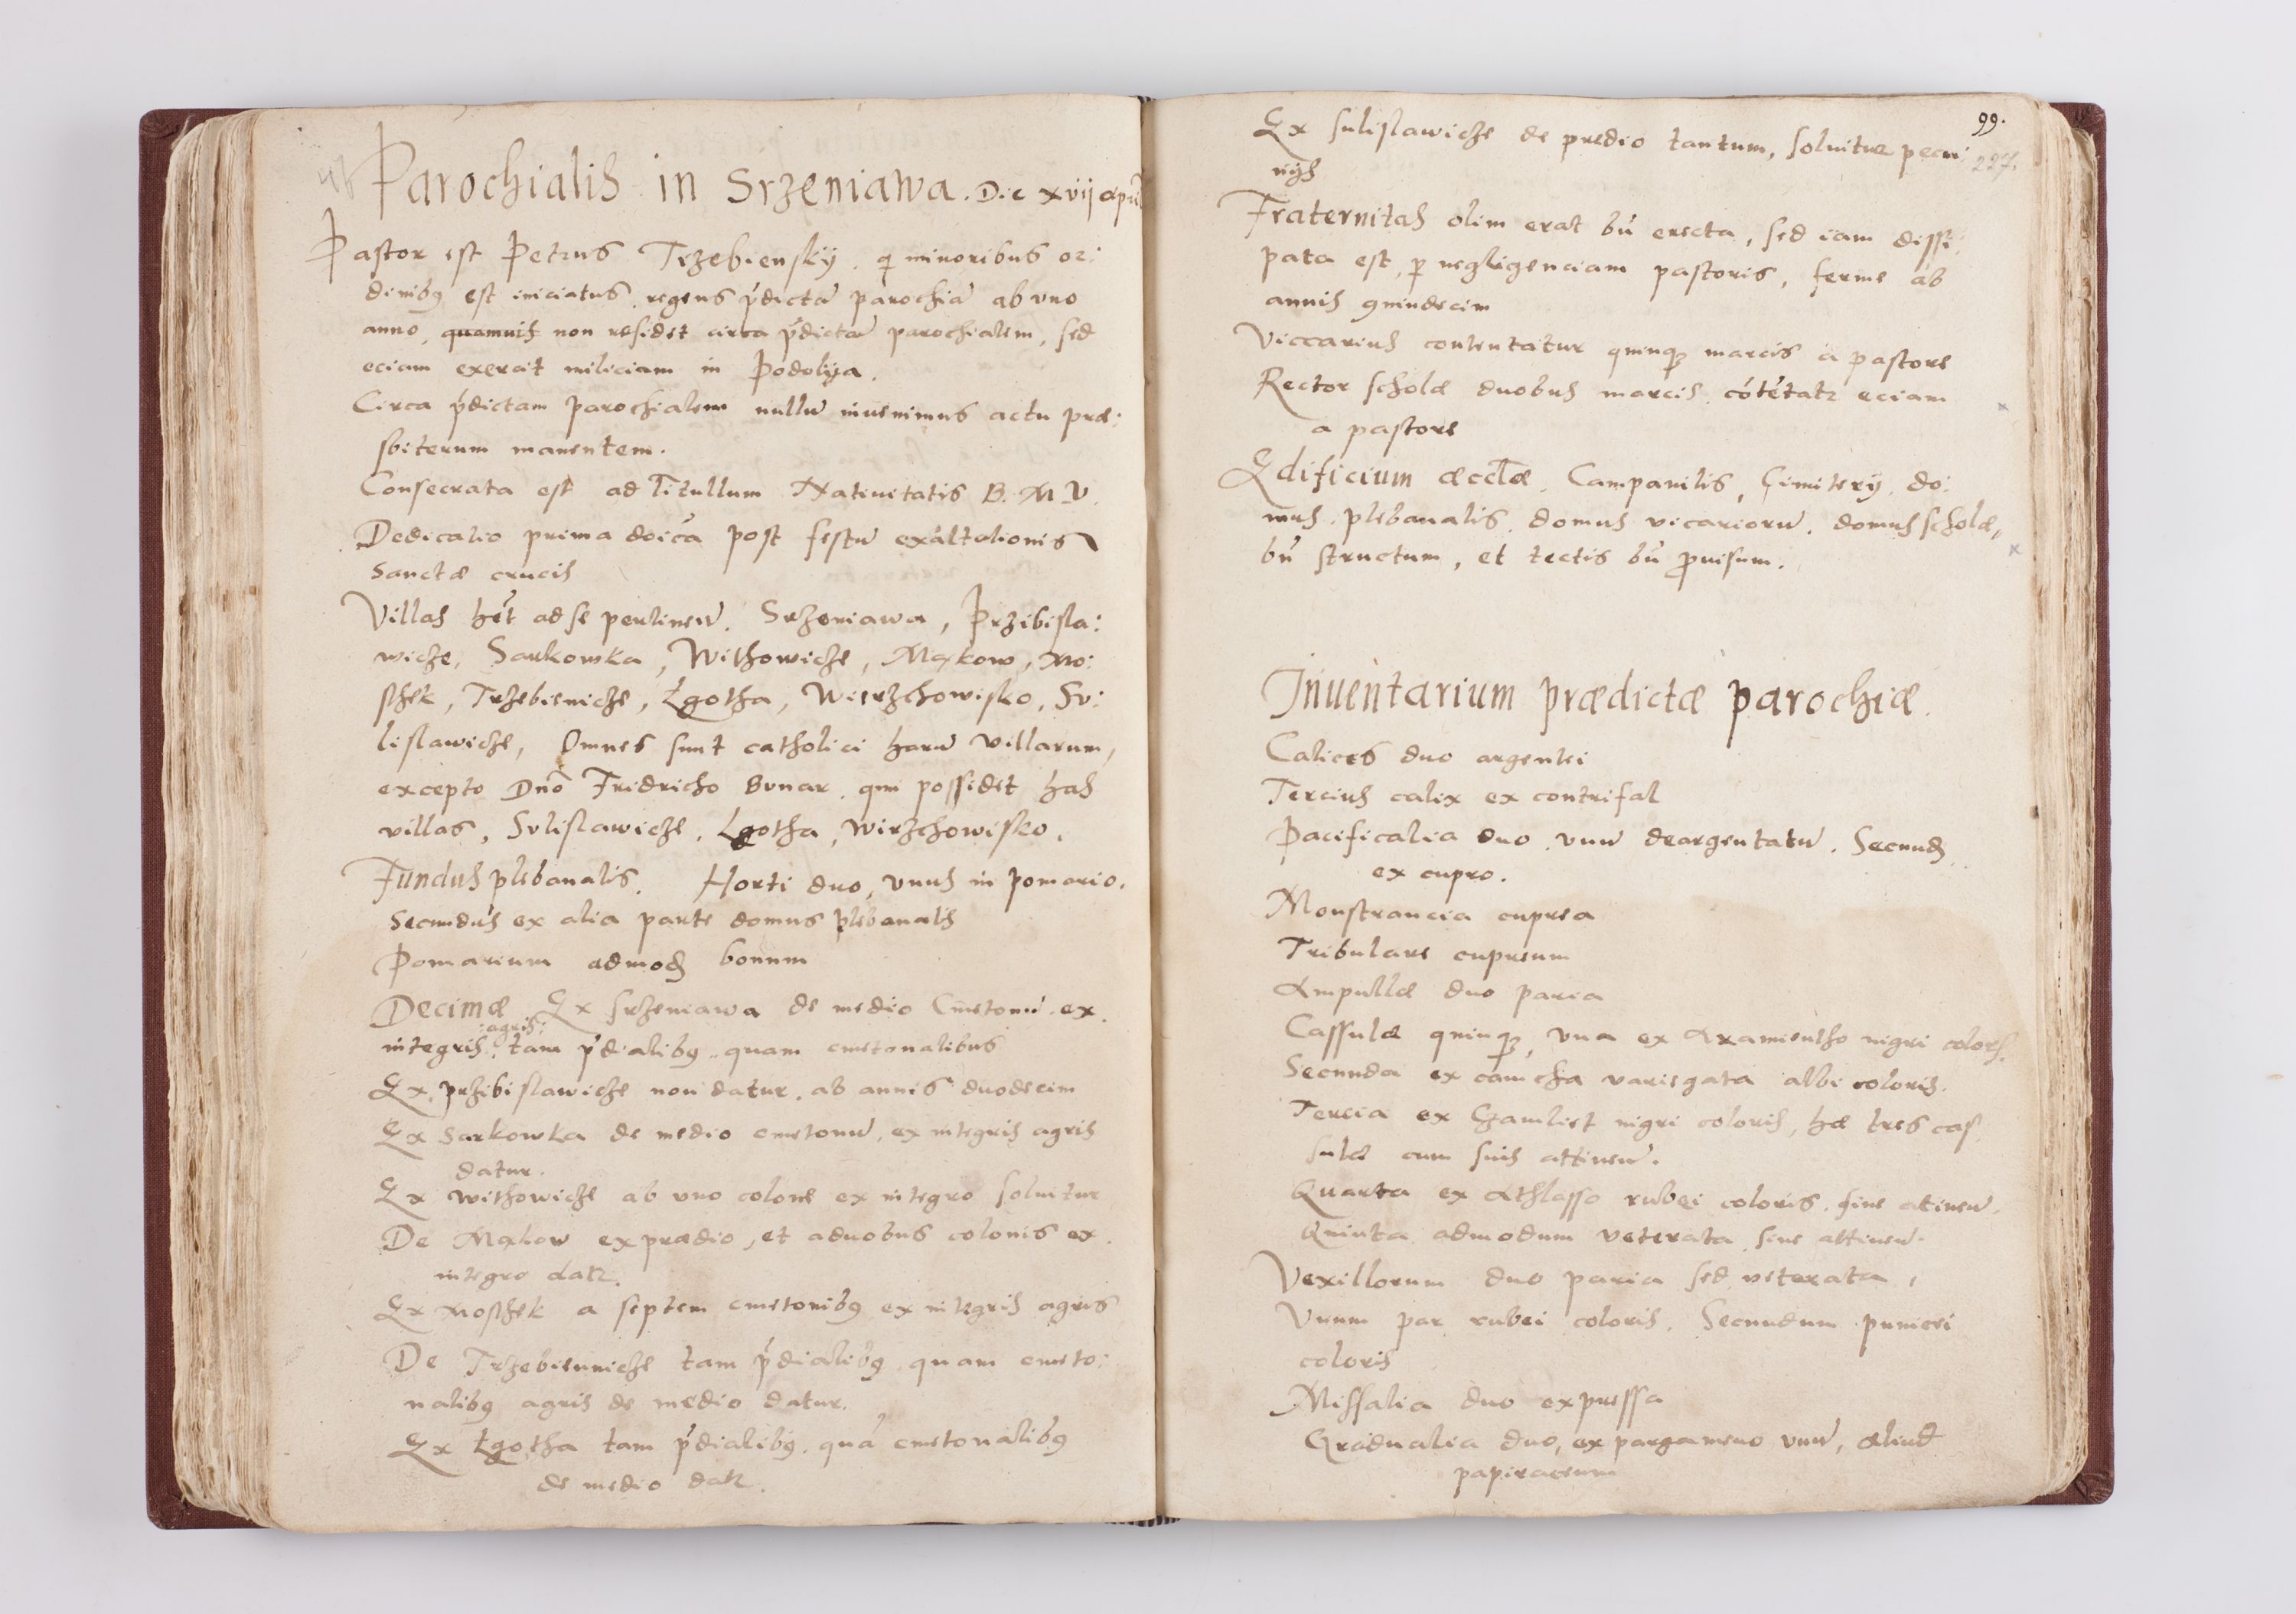 Parochialis in Srzeniawa. Die xvij apri
Pastor est Petrus Trzebienskÿ. q minoribus or:
dinibꝫ est iniciatus regens p̄dictā parochiā ab vno
anno, quamuis non residet circa p̄dictā parochialem, sed
eciam exercit miliciam in Podolÿa.
Circa p̄dictam parochialem nullū inuenimus actu præ:
sbiterum manentem.
Consecrata est ad Titullum Natiuitatis B. M. V.
Dedicatio prima doīca post festū exaltationis
Sanctæ crucis
Villas hēt ad se pertinen̄. Srzeniawa, Przibisla:
wicze, Sarkowka, Withowicze, Mąkow, Mo:
sthek, Trzebienicze, Lgotha, Wierzchowisko, Su:
lislawicze, Omnes sunt catholici harū villarum,
excepto Dn̄o Fridricho Bonar. qui possidet has
villas, Sulislawicze, Lgotha, Wirzchowisko.
Fundus plebanalis. Horti duo, vnus in pomario.
Secundus ex alia parte domus plebanalis
Pomarium admodꝫ bonum
Decimæ Ex Srzeniawa de medio Cmetonū. ex
:agris:
integris, tam p̄dialibꝫ quam cmetonalibus
Ex przibislawicze non datur, ab annis duodecim
Ex Sarkowka de medio cmetonū, ex integris agris
datur.
Ex withowicze ab vno colone ex integro soluitur
De Mąkow ex prædio, et aduobus colonis ex
integro datꝛ.
Ex Mosthek a septem cmetonibꝫ ex integris agris
De Trzebiennicze tam p̄dialibꝫ quam cmeto:
nalibꝫ agris de medio datur.
Ex Lgotha tam p̄dialibꝫ. quā cmetonalibꝫ
de medio datꝛ.
99.
227.
Ex sulislawicze de predio tantum, soluitur pecu:
nijs
Fraternitas olim erat bn̄ erecta, sed iam dissi:
pata est, p negligenciam pastoris, ferme ab
annis quindecim
Viccarius contentatur quinqꝫ marcis a pastore
Rector scholæ duobus marcis cōtētatꝛ eciam
a pastore
Edificium æccl̄æ. Campanilis, Cimiterÿ. do:
mus plebanalis. domus vicariorū. domus scholæ,
bn̄ structum, et tectis bn̄ prouisum.
Inuentarium prædictæ parochiæ.
Calices duo argentei
Tercius calix ex contrifal
Pacificalia duo, vnū deargentatū. Secundꝫ
ex cupro.
Monstrancia cuprea
Tribulare cupreum
Ampullæ duo paria
Cassulæ quinqꝫ, vna ex Axamientho nigri coloris.
Secunda ex camcha variegata albi coloris.
Tercia ex Czamliet nigri coloris, hæ tres cas
sulæ cum suis attinen̄.
Quarta ex Athlasso rubei coloris. sine atinen̄.
Quinta admodum veterata sine attinen̄.
Vexillorum duo paria sed veterata,
Vnum par rubei coloris. Secundum punicei
coloris
Missalia duo expressa
Gradualia duo, ex pargameno vnū, aliud
papiraceum